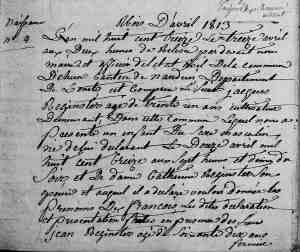 Naissance
n° 9.
Mois D'avril 1813
L'an mil huit cent treize Le treize avril
aux Deux heures de Relevée pardevant nous
maire et officier de l'état Civil De la commune
Canton de Département
De et Comparu Le Sieur Jacques
Reginster agé de trente un ans cultivateur
Demeurant Dans cette commune Lequel nous a
présenté un enfant De Sexe masculin
né de lui déclarant Le Douze avril mil
huit cent treize aux Sept heures et demie du
Soir, et De dame Catherine Son
épouse et auquel il a déclaré vouloir donner les
Prénoms De Francois Les dites déclaration
et présentation faites en présence des Sieurs
Jean Reginster agé de Soixante deux ans